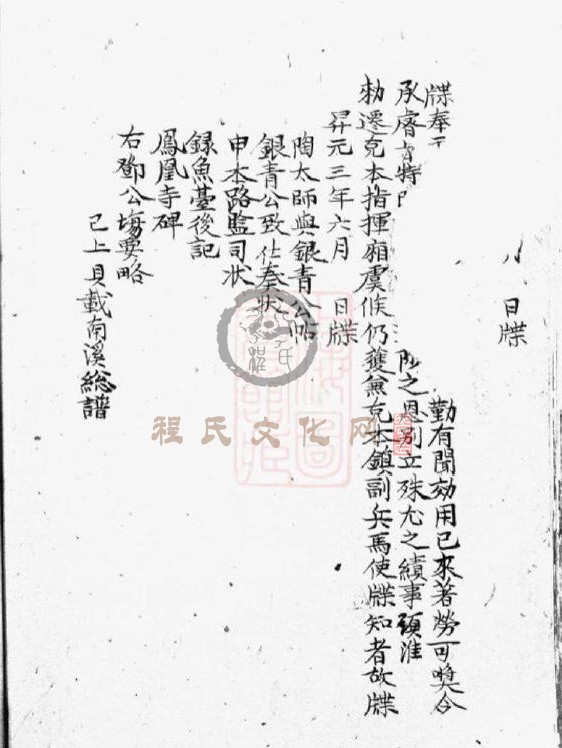 日牒
牒奉
勤有聞効用已來著勞可奬今
承膚 特 之恩别立殊尤之績事頭准
勅遷充本指揮廂虞候仍獲兼充本鎮副兵馬使牒知者故牒
昇元三年六月 日牒
陶太師與銀青公帖
銀青公致仕奏狀
申本路監司狀
録魚臺後記
鳳凰寺碑
右鄧公塲要略
已上具載南溪総譜
程氏文化网